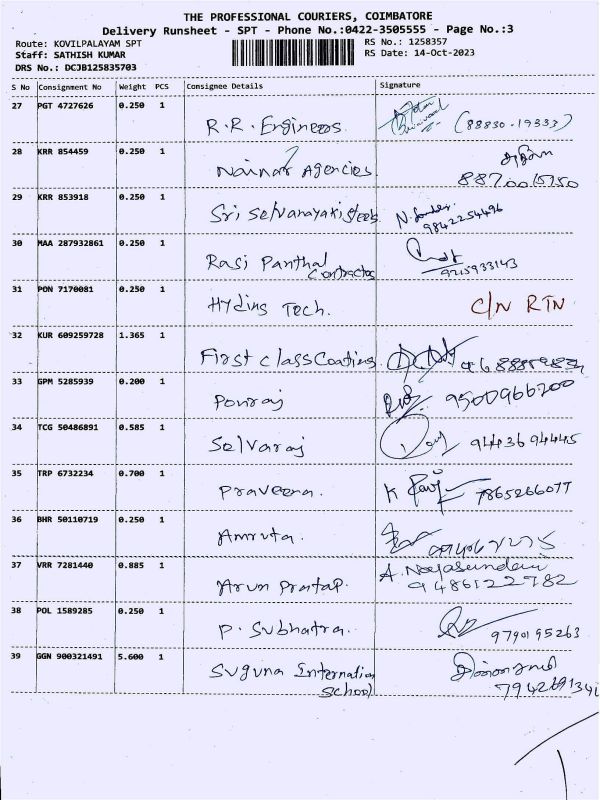 THE PROFESSIONAL COURIERS, COIMBATORE
Delivery Runsheet - SPT - Phone No.:0422-3505555 - Page No.:3
Route: KOVILPALAYAM SPT RS No.: 1258357
Staff: SATHISH KUMAR RS Date: 14-Oct-2023
DRS No.: DCJB125835703
S No Consignment No Weight PCS Consignee Details Signature
27 PGT 4727626 0.250 1 R.R. Engineers (88830-19333)
28 KRR 854459 0.250 1 Nainar Agencies
29 KRR 853918 0.250 1 Sri Selvanayaki steels 9842254496
30 MAA 287932861 0.250 1 Rasi Panthal
Contractos 9715933143
31 PON 7170081 0.250 1 Hyding Tech. C/N RTN
32 KUR 609259728 1.365 1 First Class Coating
33 GPM 5285939 0.200 1 Ponraj 9500966700
34 TCG 50486891 0.585 1 Selvaraj 9443694445
35 TRP 6732234 0.700 1 Praveena. K 7865266077
36 BHR 50110719 0.250 1 Amruta.
37 VRR 7281440 0.885 1 Arun Pratap. A.
9486122782
38 POL 1589285 0.250 1 P. Subhatra. 9790195263
39 GGN 900321491 5.600 1 Suguna Internation
School